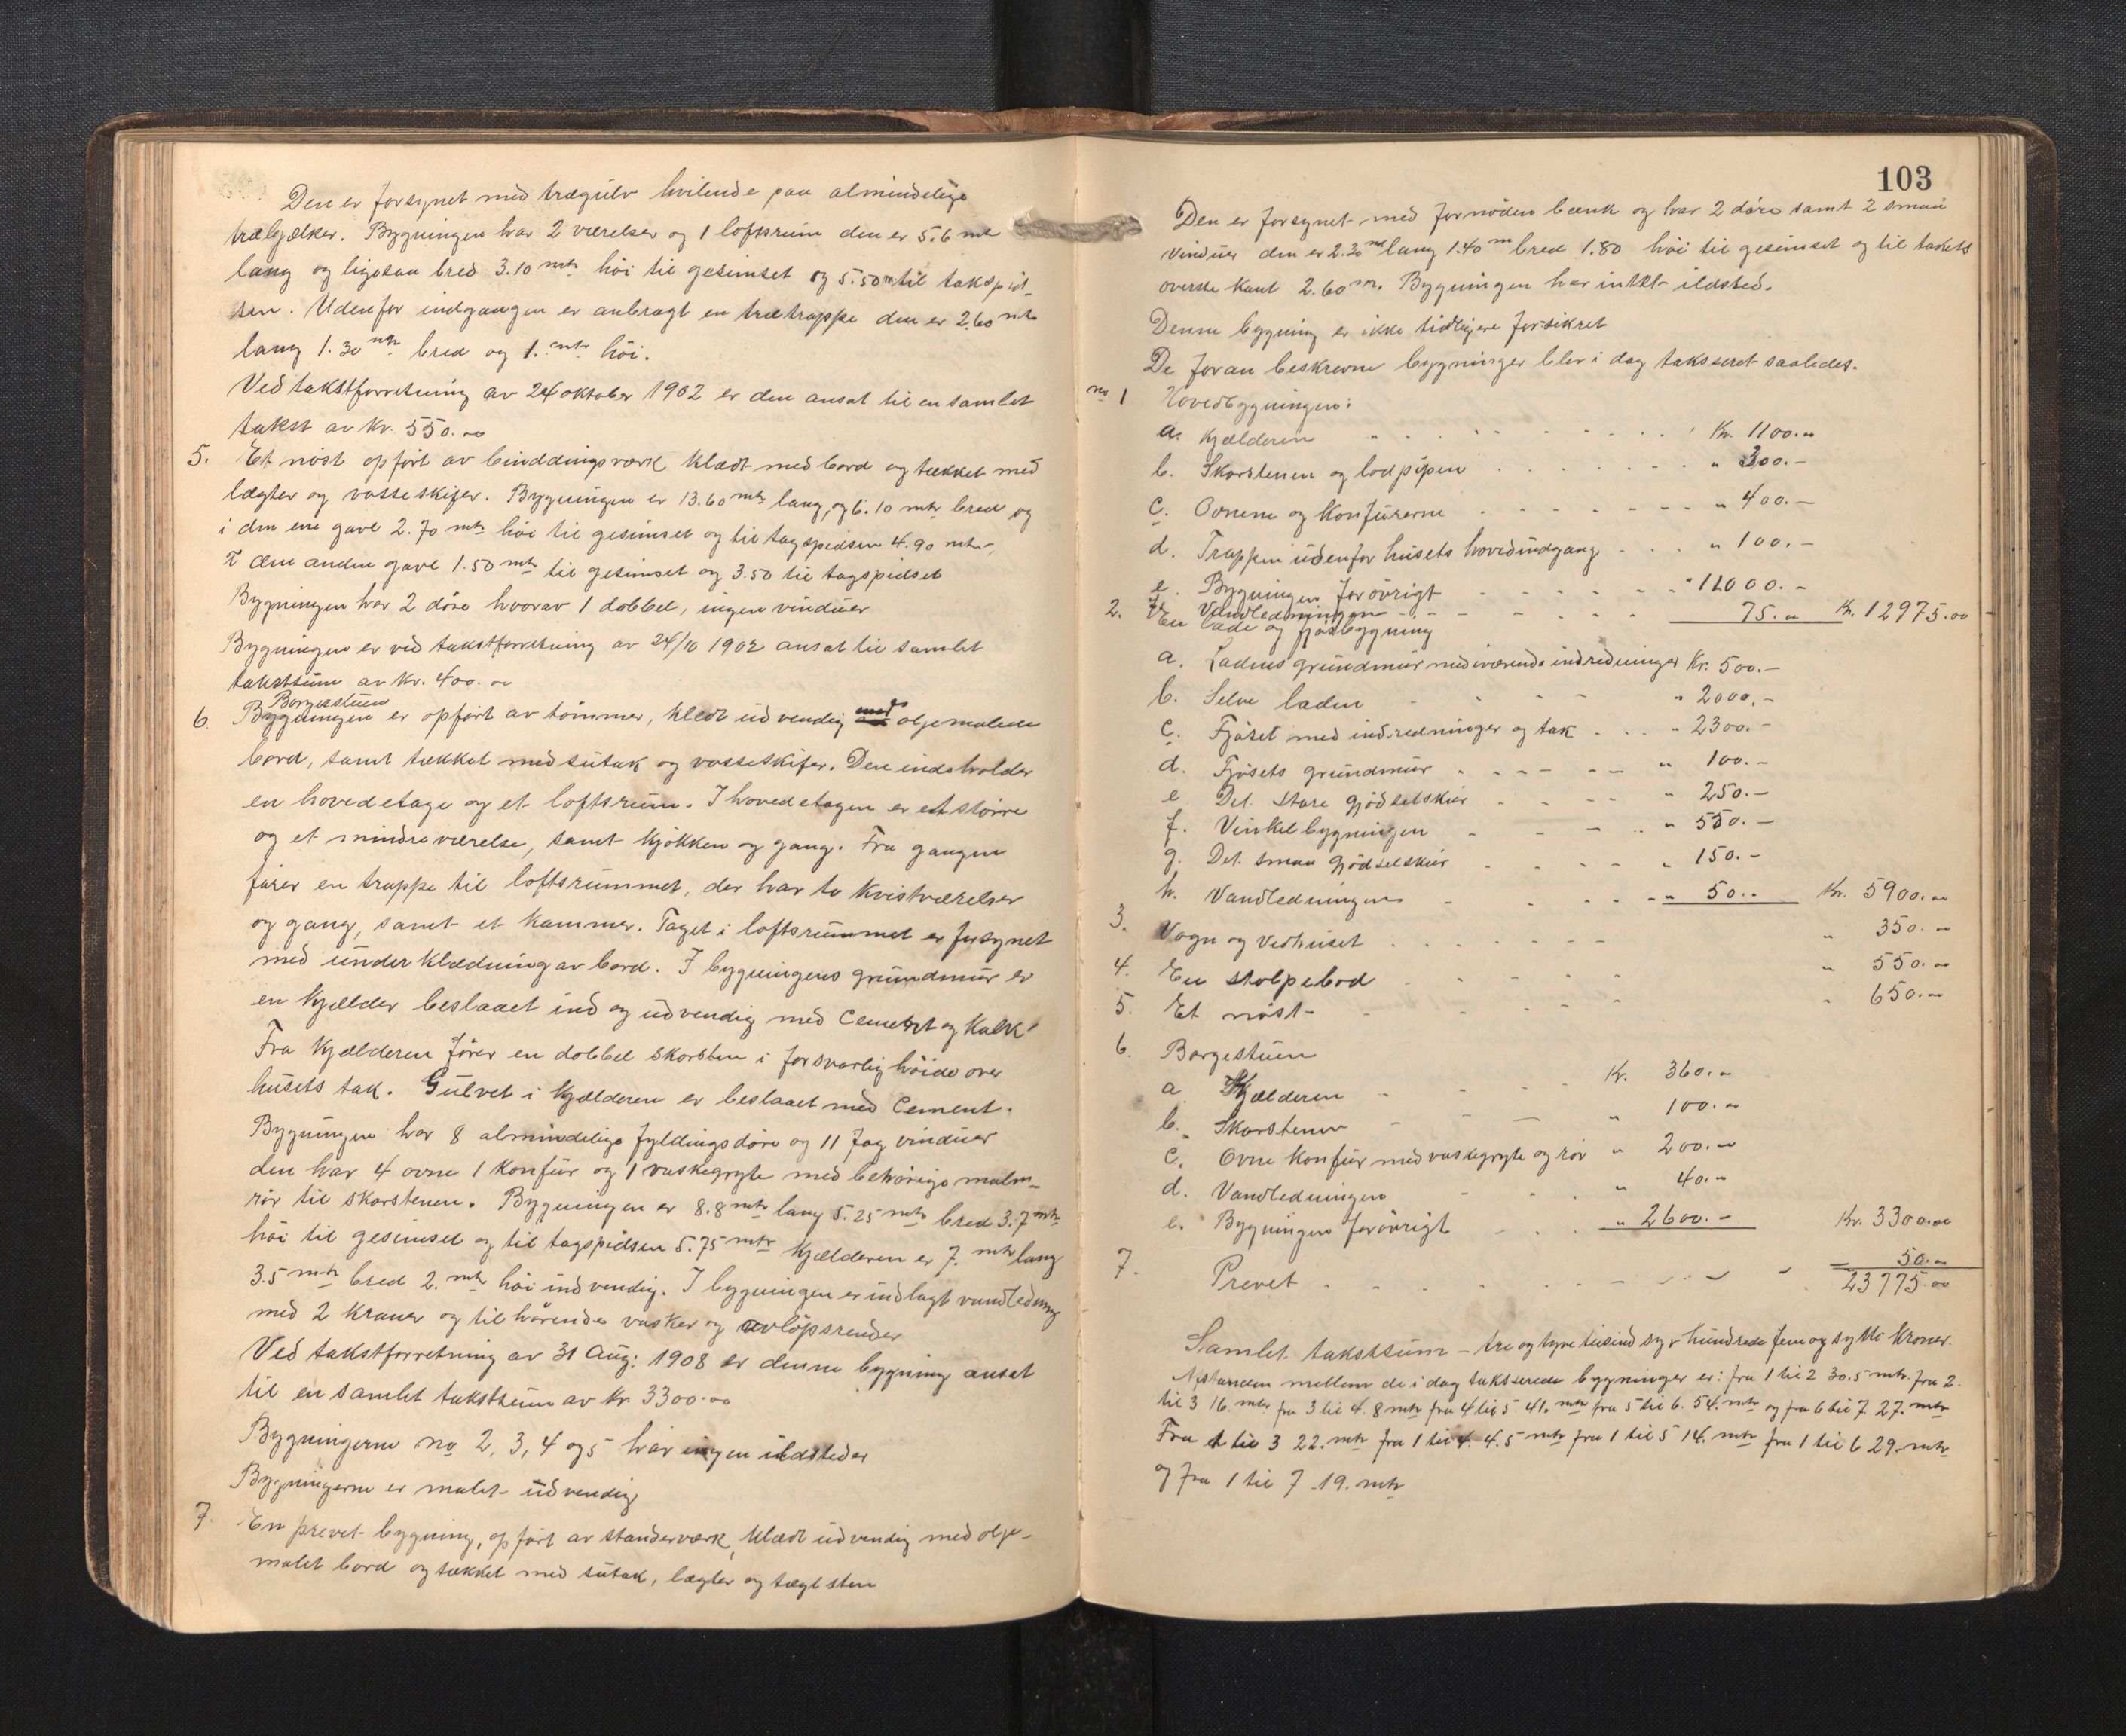 Den er forsynet med trægulv hvilende paa almindelige
træbjælker. Bygningen har 2 værelser og 1 loftsrum den er 5.6 mtr
lang og ligesaa bred 3.10 mtr høi til gesimset og 5.50 m til takspid-
sen. Udenfor indgangen er anbragt en trætrappe den er 2.60 mtr
lang 1.30 mtr bred og 1. mtr høi.
Ved takstforretning av 24 oktober 1902 er den ansat til en samlet
takst av Kr. 550.00
5. Et nøst opført av binddingsværk klædt med bord og tækket med
lægter og vosseskifer. Bygningen er 13.60 mtr lang, og 6.10 mtr bred og
i den ene gavl 2.70 mtr høi til gesimset og til tagspidsen 4.90 mtr,
I den anden gavl 1.50 mtr til gesimset og 3.50 til tagspidset
Bygningen har 2 døre hvorav 1 dobbel, ingen vinduer
Bygningen er ved takstforretning av 24/10 1902 ansat til samlet
takstsum av Kr. 400.00
Borgestuen
6. Bygningen er opført av tømmer, klædt udvendig med oljemalede
bord, samt tækket med sutak og vosseskifer. Den indeholder
en hovedetage og et loftsrum. I hovedetagen er et større
og et mindre værelse, samt kjøkken og gang. Fra gangen
fører en trappe til loftsrummet, der har to kvistværelser
og gang, samt et kammer. Taget i loftsrummet er forsynet
med underklædning av bord. I bygningens grundmur er
en kjælder beslaaet ind og udvendig med Cement og Kalk
Fra kjælderen fører en dobbel skorsten i forsvarlig høide over
husets tak. Gulvet i kjælderen er beslaaet med Cement.
Bygningen har 8 almindelige fyldingsdøre og 11 fag vinduer
den har 4 ovne 1 konfur og 1 vaskegryte med behørige malm-
rør til skorstenen. Bygningen er 8.8 mtr lang 5.25 mtr bred 3.7 mtr
høi til gesimset og til tagspidsen 5.75 mtr Kjælderen er 7. mtr lang
3.5 mtr bred 2. mtr høi indvendig. I bygningen er indlagt vandledning
med 2 kraner og tilhørende vasker og avløpsrender
Ved takstforretning av 31 Aug: 1908 er denne bygning ansat
til en samlet takstsum av Kr 3300.00
Bygningerne no 2, 3, 4 og 5 har ingen ildsteder
Bygningerne er malet udvendig
7. En prevet bygning, opført av standerværk, klædt udvendig med olje-
malet bord og tækket med sutak, lægter og tægl sten
103
Den er forsynet med fornøden bænk og har 2 døre samt 2 smaa
vinduer den er 2.30 m lang 1.40 m bred 1.80 høi til gesimset og til takets
øverste kant 2.60 m. Bygningen har intet ildsted.
Denne bygning er ikke tidligere forsikret
De foran beskrevne bygninger blev i dag taksseret saaledes.
no 1 Hovedbygningen:
a. Kjælderen Kr. 1100.00
b. Skorstenen og lodpipen " 300.-
c. Ovnene og Konfurerne " 400.-
d. Trappen udenfor husets hovedindgang " 100.-
e. Bygningen forøvrigt " 11000.-
f. Vandledningen 75.00 Kr. 12975.00
2. En lade og fjøsbygning
a. Ladens grundmur med iværende indredninger Kr. 500.-
b. Selve laden " 2000.-
c. Fjøset med indredninger og tak " 2300.-
d. Fjøsets grundmur " 100.-
e. Det store gjødselskur " 250.-
f. Vinkelbygningen " 550.-
g. Det smaa gjødselskur " 150.-
h. Vandledningen " 50.- Kr. 5900.00
3. Vogn og vedhuset " 350.00
4. En stolpebod " 550.00
5. Et nøst " 650.00
6. Borgestuen
a. Kjælderen Kr. 360.00
b. Skorstenen " 100.00
c. Ovne konfur med vaskegryte og rør " 200.00
d. Vandledningen " 40.00
e. Bygningen forøvrigt " 2600.- Kr. 3300.00
7. Prevet 50.00
23775.00
Samlet takstsum - tre og tyve tusind syv hundrede fem og sytti kroner.
Afstanden mellem de i dag taksserede bygninger er: fra 1 til 2 30.5 mtr. fra 2.
til 3 16. mtr fra 3 til 4. 8 mtr fra 4 til 5 41. mtr fra 5 til 6. 54. mtr og fra 6 til 7 27. mtr
Fra 1 til 3 22. mtr fra 1 til 4. 4.5 mtr fra 1 til 5 14. mtr fra 1 til 6 29. mtr
og fra 1 til 7 19. mtr